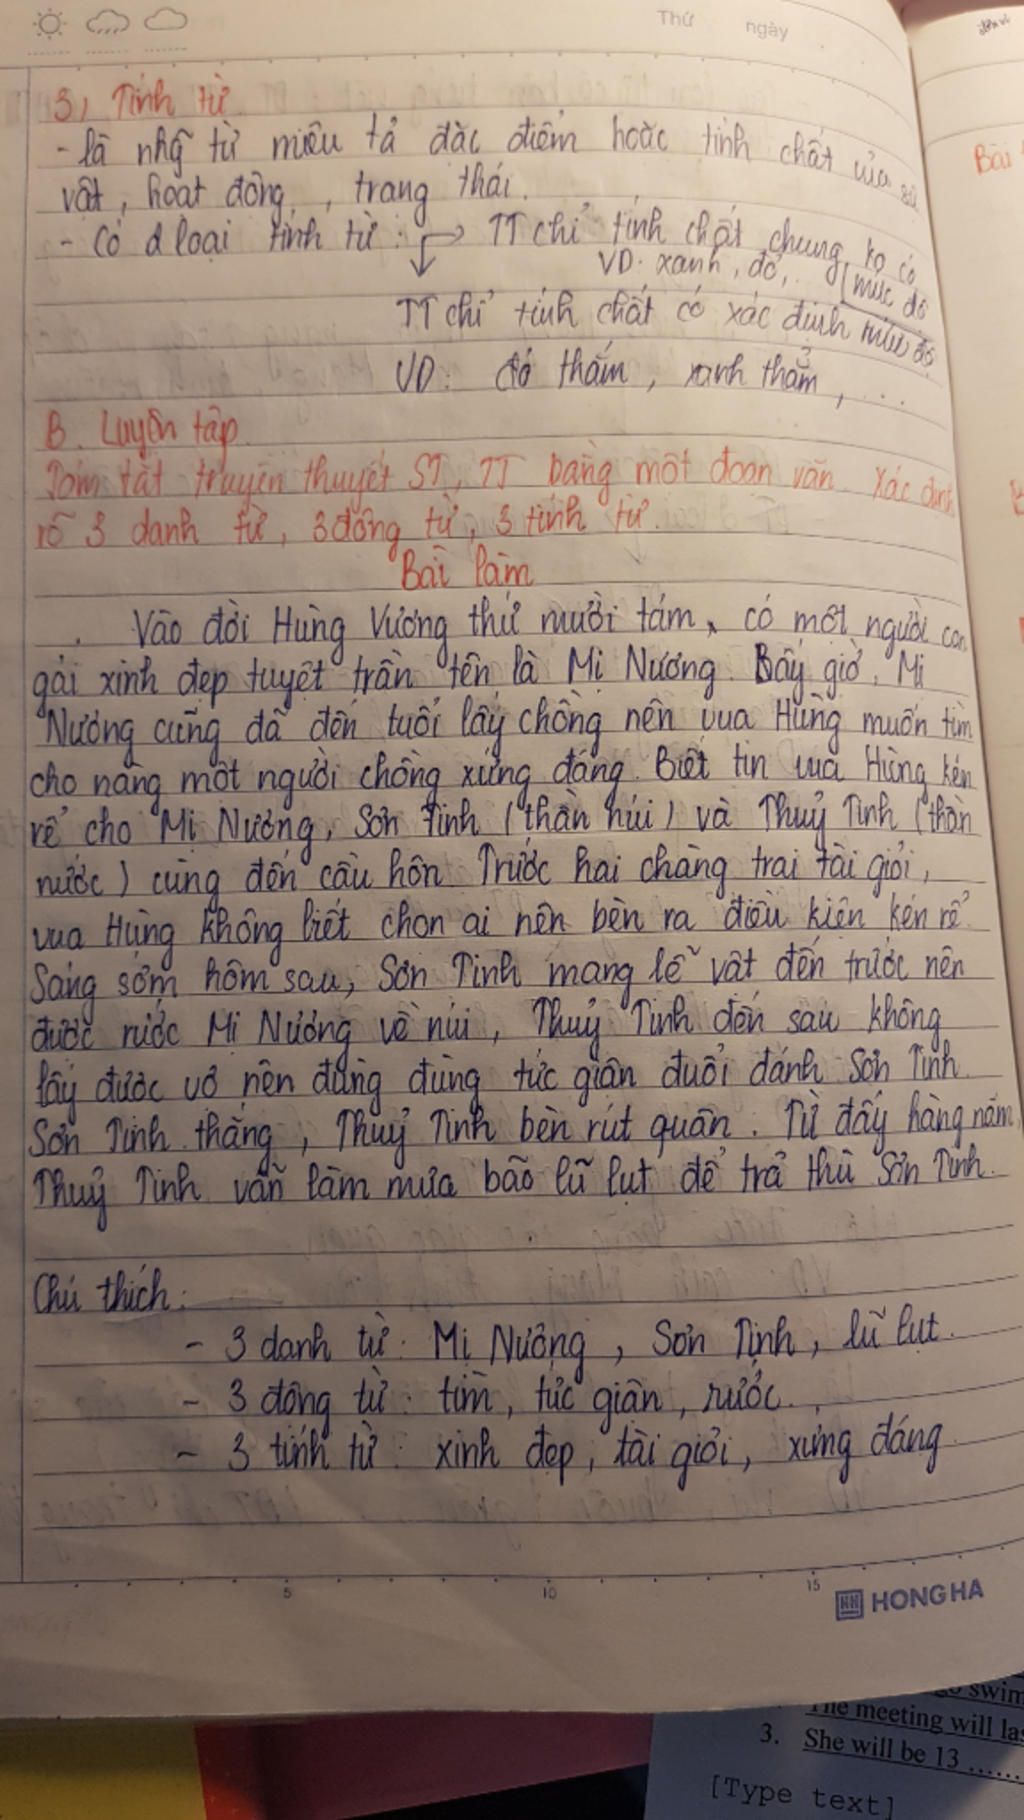 Thứ ngày
3, Tính từ
- là nhg̃ từ miêu tả đặc điểm hoặc tính chất của sự
vật, hoạt động, trạng thái.
- Có 2 loại tính từ: TT chỉ tính chất chung, ko có
mức độ
VD: xanh, đỏ,..
TT chỉ tính chất có xác định mức độ
VD: đỏ thắm, xanh thẳm, ...
B. Luyện tập
Tóm tắt truyền thuyết ST, TT bằng một đoạn văn. Xác định
rõ 3 danh từ, 3 động từ, 3 tính từ.
Bài làm
Vào đời Hùng Vương thứ mười tám, có một người con
gái xinh đẹp tuyệt trần tên là Mị Nương. Bấy giờ, Mị
Nương cũng đã đến tuổi lấy chồng nên vua Hùng muốn tìm
cho nàng một người chồng xứng đáng. Biết tin vua Hùng kén
rể cho Mị Nương, Sơn Tinh (thần núi) và Thuỷ Tinh (thần
nước) cùng đến cầu hôn. Trước hai chàng trai tài giỏi,
vua Hùng không biết chọn ai nên bèn ra điều kiện kén rể.
Sáng sớm hôm sau, Sơn Tinh mang lễ vật đến trước nên
được rước Mị Nương về núi, Thuỷ Tinh đến sau không
lấy được vợ nên đùng đùng tức giận đuổi đánh Sơn Tinh.
Sơn Tinh thắng, Thuỷ Tinh bèn rút quân. Từ đấy hàng năm
Thuỷ Tinh vẫn làm mưa bão lũ lụt để trả thù Sơn Tinh.
Chú thích:
- 3 danh từ: Mị Nương, Sơn Tinh, lũ lụt.
- 3 động từ: tìm, tức giận, rước.
- 3 tính từ: xinh đẹp, tài giỏi, xứng đáng
5 10 15
HONG HA
Bài
go swim
The meeting will las
3. She will be 13 ......
[Type text]